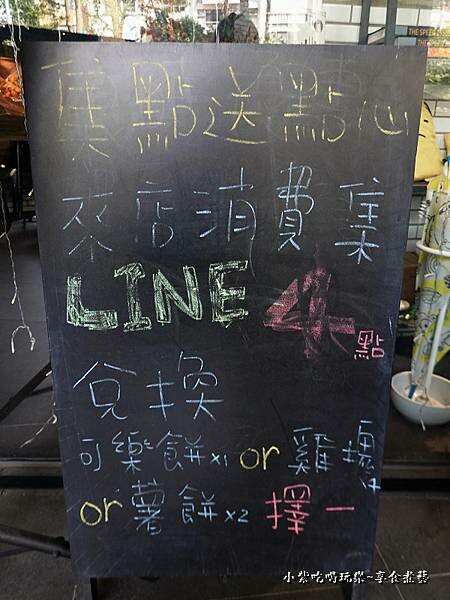 集點送點心
來店消費集
LINE 4點
兌換
可樂餅x1 or 雞塊x4
or 薯餅x2 擇一
小紫吃喝玩樂~享食煮藝